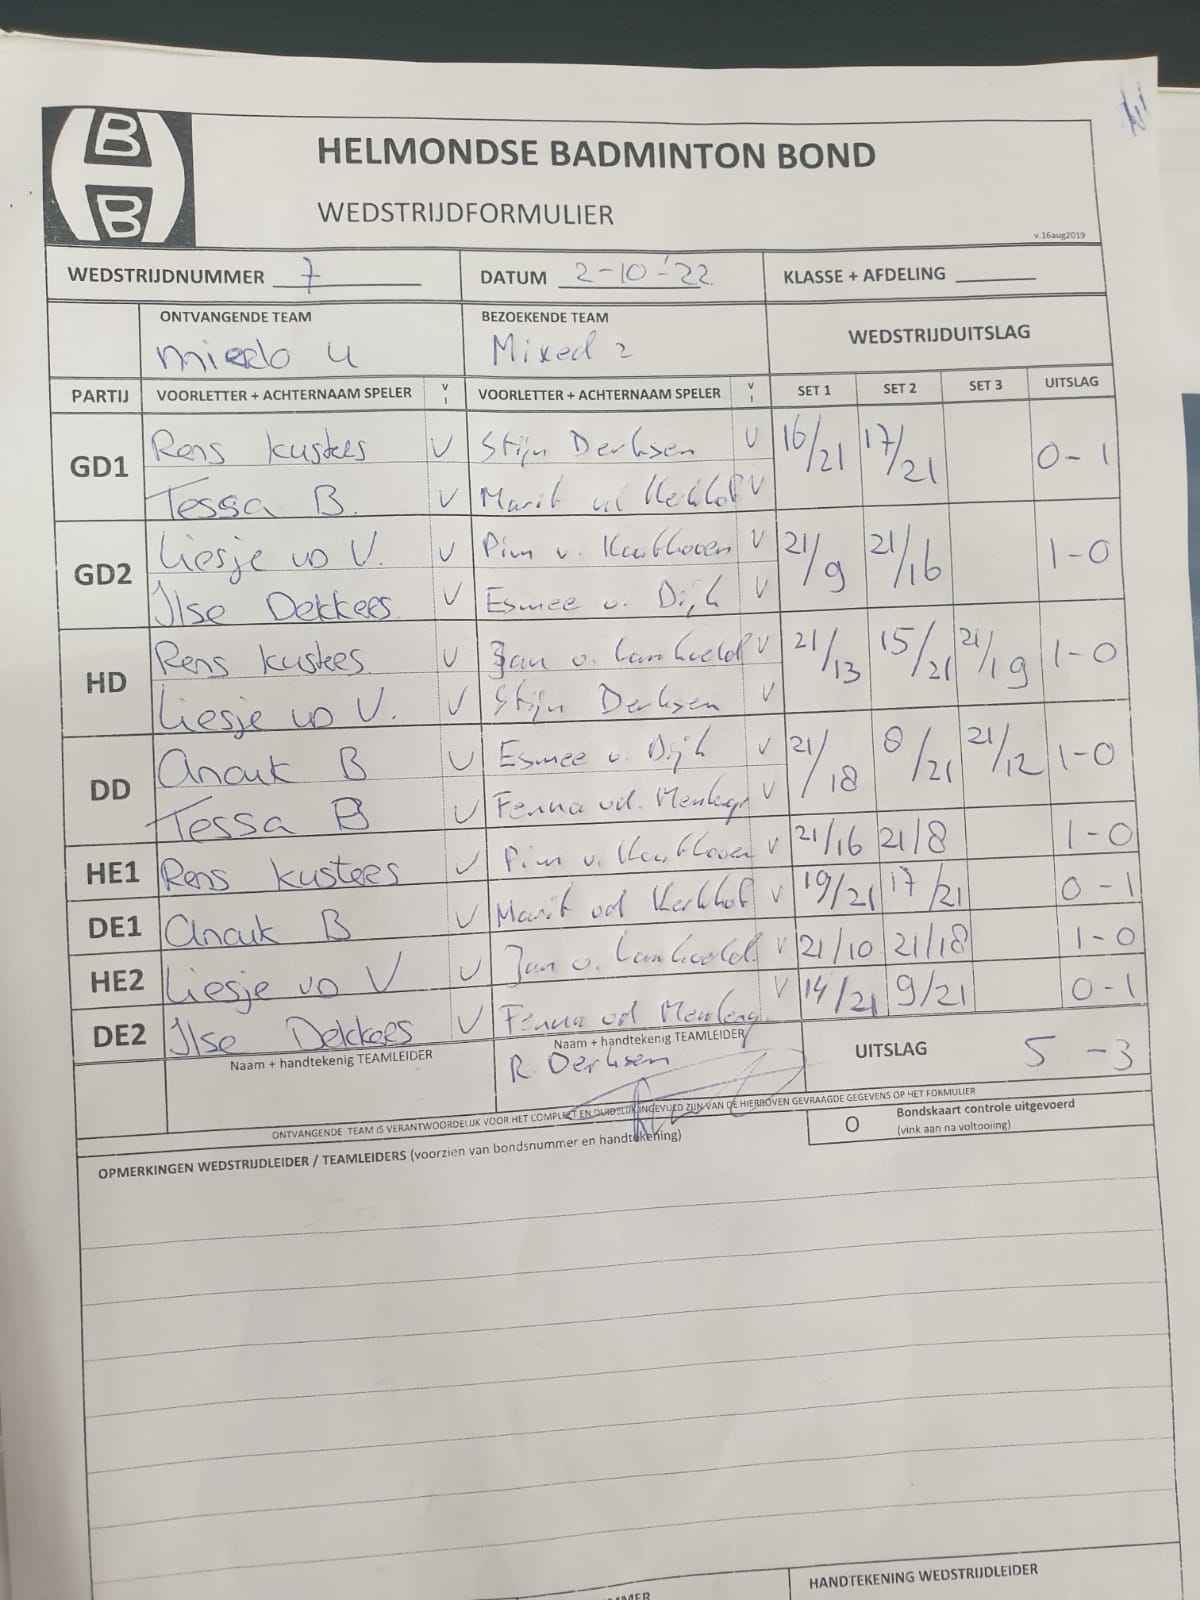 B
B
HELMONDSE BADMINTON BOND
WEDSTRIJDFORMULIER
v.16aug2019
WEDSTRIJDNUMMER 7 DATUM 2-10-'22 KLASSE + AFDELING
ONTVANGENDE TEAM BEZOEKENDE TEAM WEDSTRIJDUITSLAG
mierlo 4 Mixed 2
PARTIJ VOORLETTER + ACHTERNAAM SPELER V I VOORLETTER + ACHTERNAAM SPELER V I SET 1 SET 2 SET 3 UITSLAG
GD1 Rens Kusters V Stijn Derksen V 16/21 17/21 0-1
Tessa B. V Marit vd Kerkhof V
GD2 Liesje vd V. V Pim v. Kouthoven V 21/9 21/16 1-0
Ilse Dekkers V Esmee v. Dijk V
HD Rens Kusters V Jan v. Lankveld V 21/13 15/21 21/19 1-0
Liesje vd V. V Stijn Derksen V
DD Anouk B V Esmee v. Dijk V 21/18 8/21 21/12 1-0
Tessa B V Fenna vd. V
HE1 Rens Kusters V Pim v. Kouthoven V 21/16 21/8 1-0
DE1 Anouk B V Marit vd Kerkhof V 19/21 17/21 0-1
HE2 Liesje vd V V Jan v. Lankveld V 21/10 21/18 1-0
DE2 Ilse Dekkers V Fenna vd V 14/21 9/21 0-1
Naam + handtekenig TEAMLEIDER Naam + handtekenig TEAMLEIDER UITSLAG 5-3
R. Derksen
ONTVANGENDE TEAM IS VERANTWOORDELIJK VOOR HET COMPLEET EN DUIDELIJK INGEVULD ZIJN VAN DE HIERBOVEN GEVRAAGDE GEGEVENS OP HET FORMULIER
O Bondskaart controle uitgevoerd
(vink aan na voltooiing)
OPMERKINGEN WEDSTRIJDLEIDER / TEAMLEIDERS (voorzien van bondsnummer en handtekening)
HANDTEKENING WEDSTRIJDLEIDER